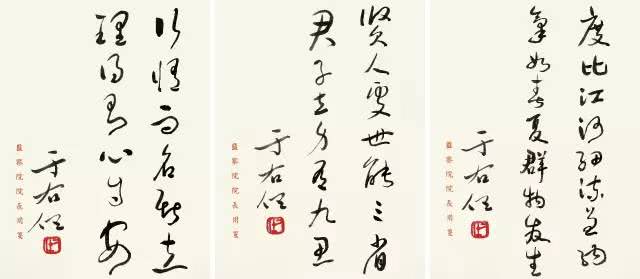 度比江河細流兼納
氣如春夏群物發生
于右任
監察院院長用箋
賢人處世能三省
君子立身有九思
于右任
監察院院長用箋
行修而名斯立
理得則心自安
于右任
監察院院長用箋